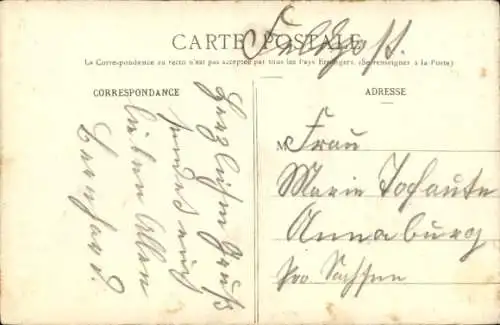 CARTE POSTALE
Feldpost.
La Correspondance au recto n'est pas acceptée par tous les Pays Etrangers. (Se renseigner à la Poste)
CORRESPONDANCE
Herzlichen Gruß
sendet euch
lieben Allen
Bernhard.
ADRESSE
M
Frau
Marie
Annaburg
Prov Sachsen